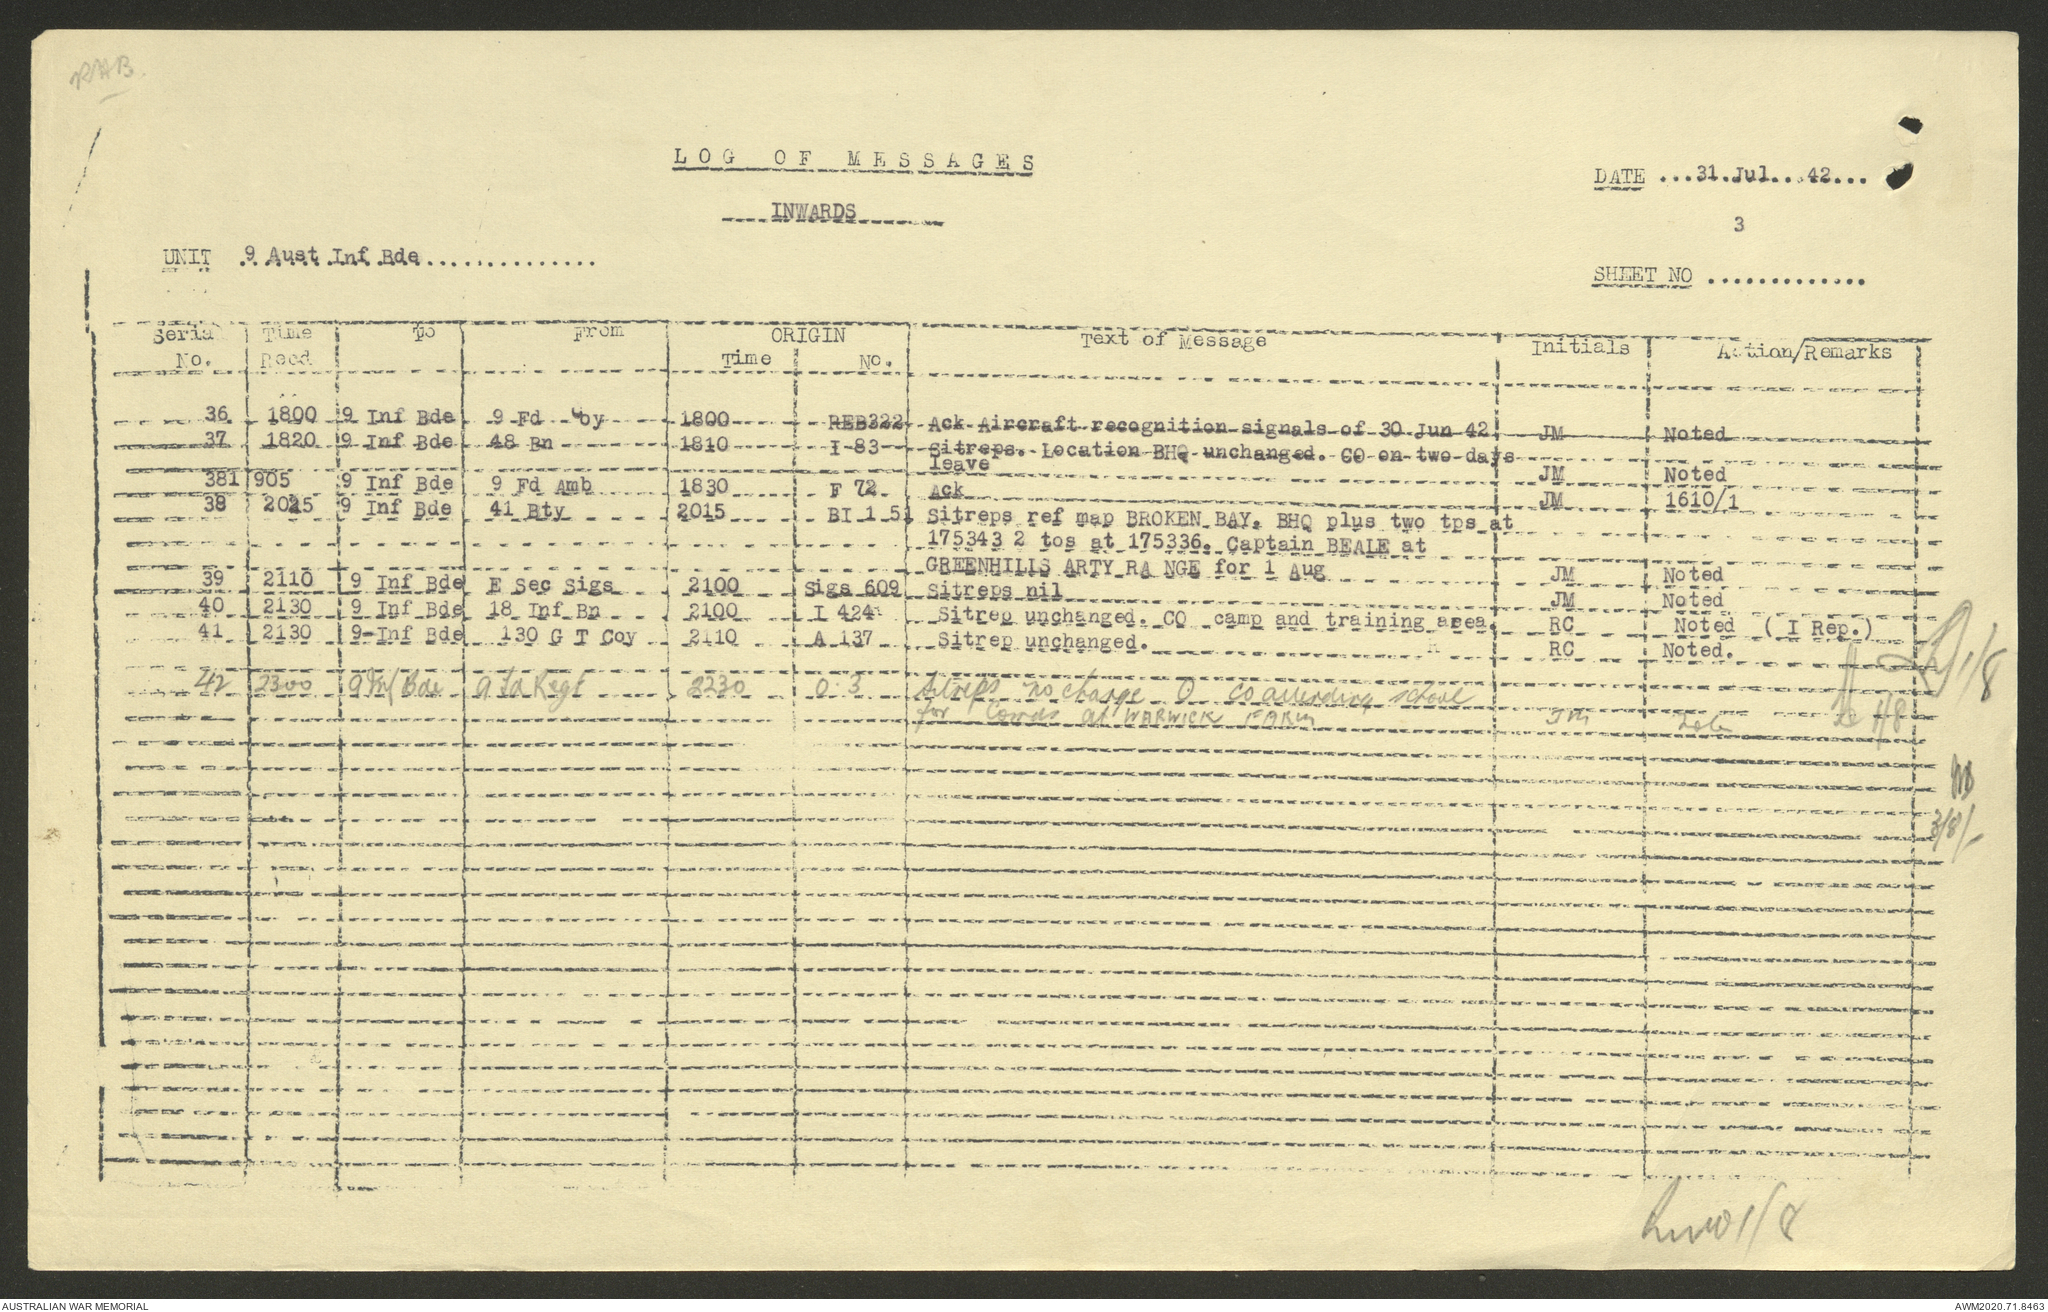 RAB
LOG OF MESSAGES
INWARDS
DATE ...31.Jul...42...
3
UNIT 9 Aust Inf Bde..............
SHEET NO .............
Serial No. Time Recd To From ORIGIN Time No. Text of Message Initials Action/Remarks
36 1800 9 Inf Bde 9 Fd Coy 1800 REB322 Ack Aircraft recognition signals of 30 Jun 42 JM Noted
37 1820 9 Inf Bde 48 Bn 1810 I 83 Sitreps. Location BHQ unchanged. CO on two days
leave JM Noted
381 905 9 Inf Bde 9 Fd Amb 1830 F 72 Ack JM 1610/1
38 2025 9 Inf Bde 41 Bty 2015 BI 1 51 Sitreps ref map BROKEN BAY. BHQ plus two tps at
175343 2 tos at 175336. Captain BEALE at
GREENHILLS ARTY RA NGE for 1 Aug JM Noted
39 2110 9 Inf Bde E Sec Sigs 2100 Sigs 609 Sitreps nil JM Noted
40 2130 9 Inf Bde 18 Inf Bn 2100 I 424 Sitrep unchanged. CO camp and training area. RC Noted (I Rep.)
41 2130 9-Inf Bde 130 G T Coy 2110 A 137 Sitrep unchanged. RC Noted.
42 2300 9 Inf Bde 9 Fd Regt 2230 O 3 Sitreps no change O CO attending school
for Comds at WARWICK FARM JM
1/8
1/8
3/8/-
1/8
AUSTRALIAN WAR MEMORIAL
AWM2020.71.8463